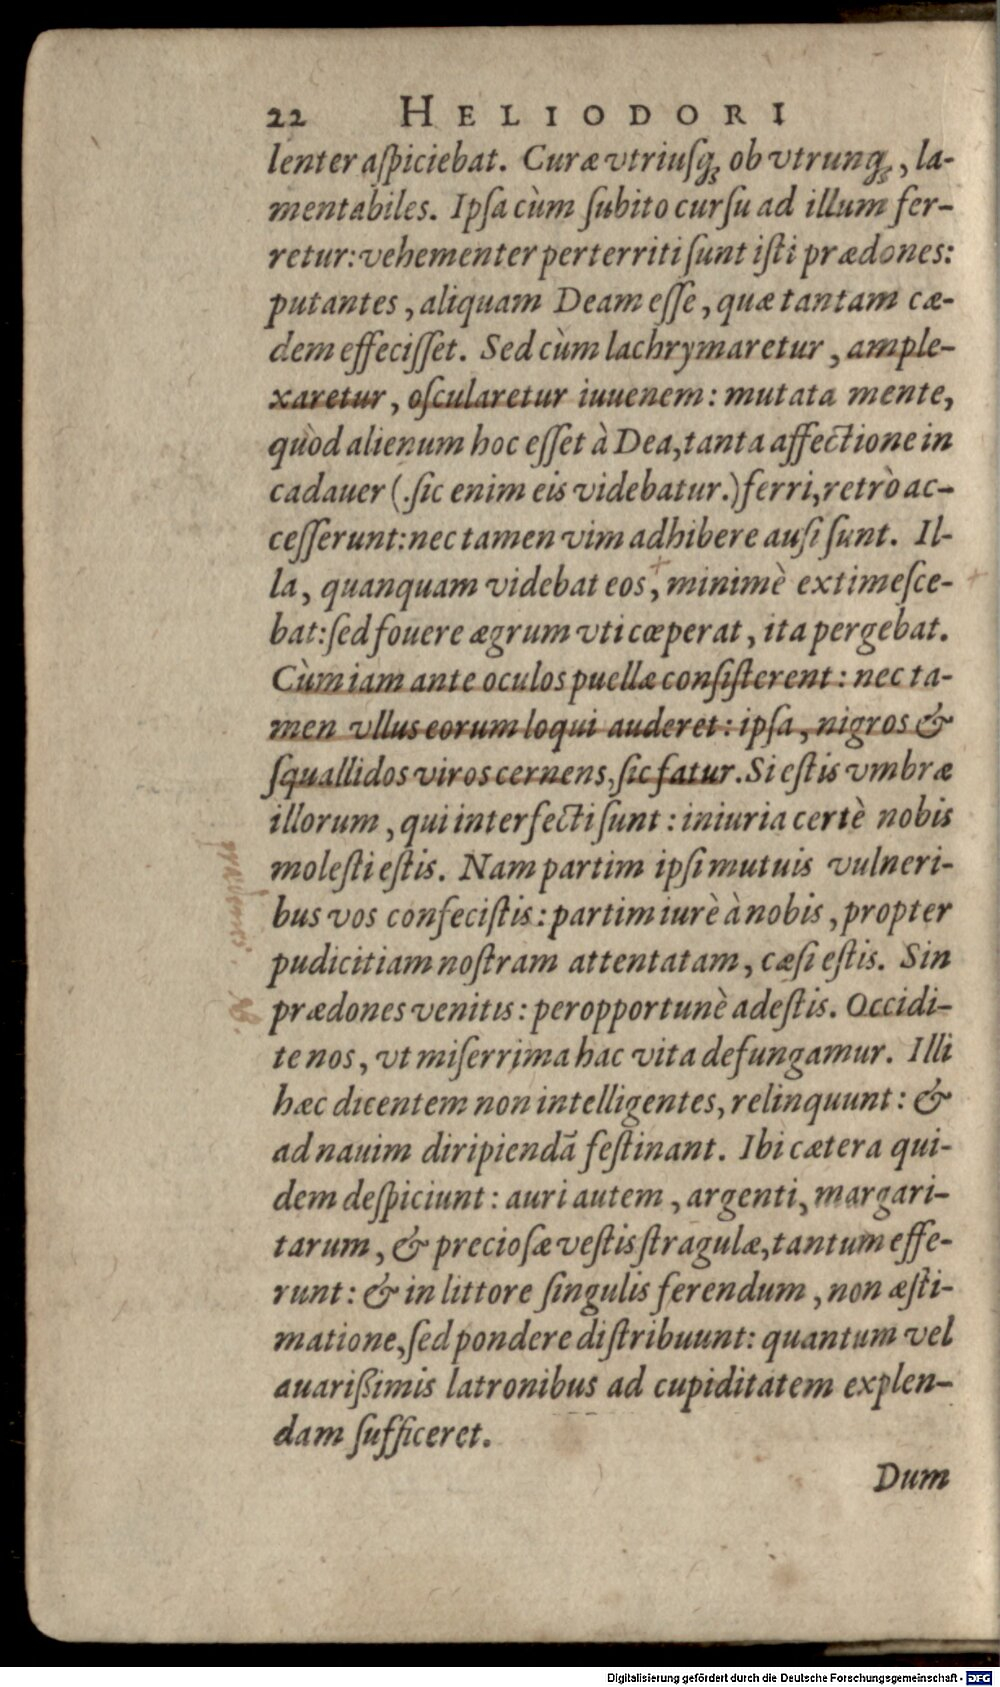 22 HELIODORI
lenter aſpiciebat. Curæ vtriuſq́ꝫ ob vtrunq́ꝫ, la-
mentabiles. Ipſa cùm ſubito curſu ad illum fer-
retur: vehementer perterriti ſunt iſti prædones:
putantes, aliquam Deam eſſe, quæ tantam cæ-
dem effeciſſet. Sed cùm lachrymaretur, ample-
xaretur, oſcularetur iuuenem: mutata mente,
quòd alienum hoc eſſet à Dea, tanta affectione in
cadauer (.ſic enim eis videbatur.) ferri, retrò ac-
ceſſerunt: nec tamen vim adhibere auſi ſunt. Il-
la, quanquam videbat eos, minimè extimeſce-
bat: ſed fouere ægrum vti cœperat, ita pergebat.
Cùm iam ante oculos puellæ conſiſterent: nec ta-
men vllus eorum loqui auderet: ipſa, nigros &
ſquallidos viros cernens, ſic fatur. Si eſtis vmbræ
illorum, qui interfecti ſunt: iniuria certè nobis
moleſti eſtis. Nam partim ipſi mutuis vulneri-
bus vos confeciſtis: partim iurè à nobis, propter
pudicitiam noſtram attentatam, cæſi eſtis. Sin
prædones venitis: peropportunè adeſtis. Occidi-
te nos, vt miſerrima hac vita defungamur. Illi
hæc dicentem non intelligentes, relinquunt: &
ad nauim diripiendã feſtinant. Ibi cætera qui-
dem deſpiciunt: auri autem, argenti, margari-
tarum, & precioſæ veſtis ſtragulæ, tantum effe-
runt: & in littore ſingulis ferendum, non æſti-
matione, ſed pondere diſtribuunt: quantum vel
auarißimis latronibus ad cupiditatem explen-
dam ſufficeret.
Dum
Digitalisierung gefördert durch die Deutsche Forschungsgemeinschaft - DFG